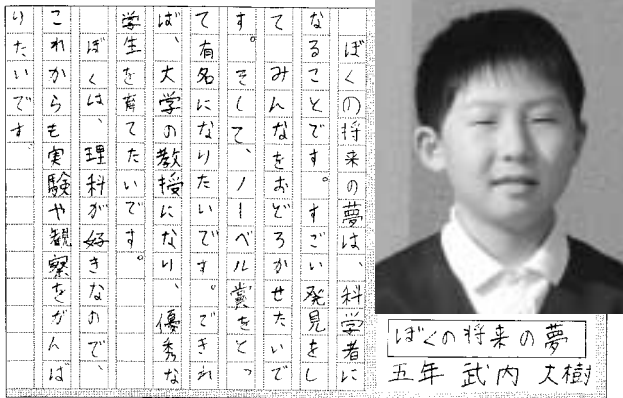 ぼくの将来の夢
五年 武内 大樹
ぼくの将来の夢は、科学者に
なることです。すごい発見をし
て みんなをおどろかせたいで
す。そして、ノーベル賞をとっ
て有名になりたいです。できれ
ば、大学の教授になり、優秀な
学生を育てたいです。
ぼくは、理科が好きなので、
これからも実験や観察をがんば
りたいです。